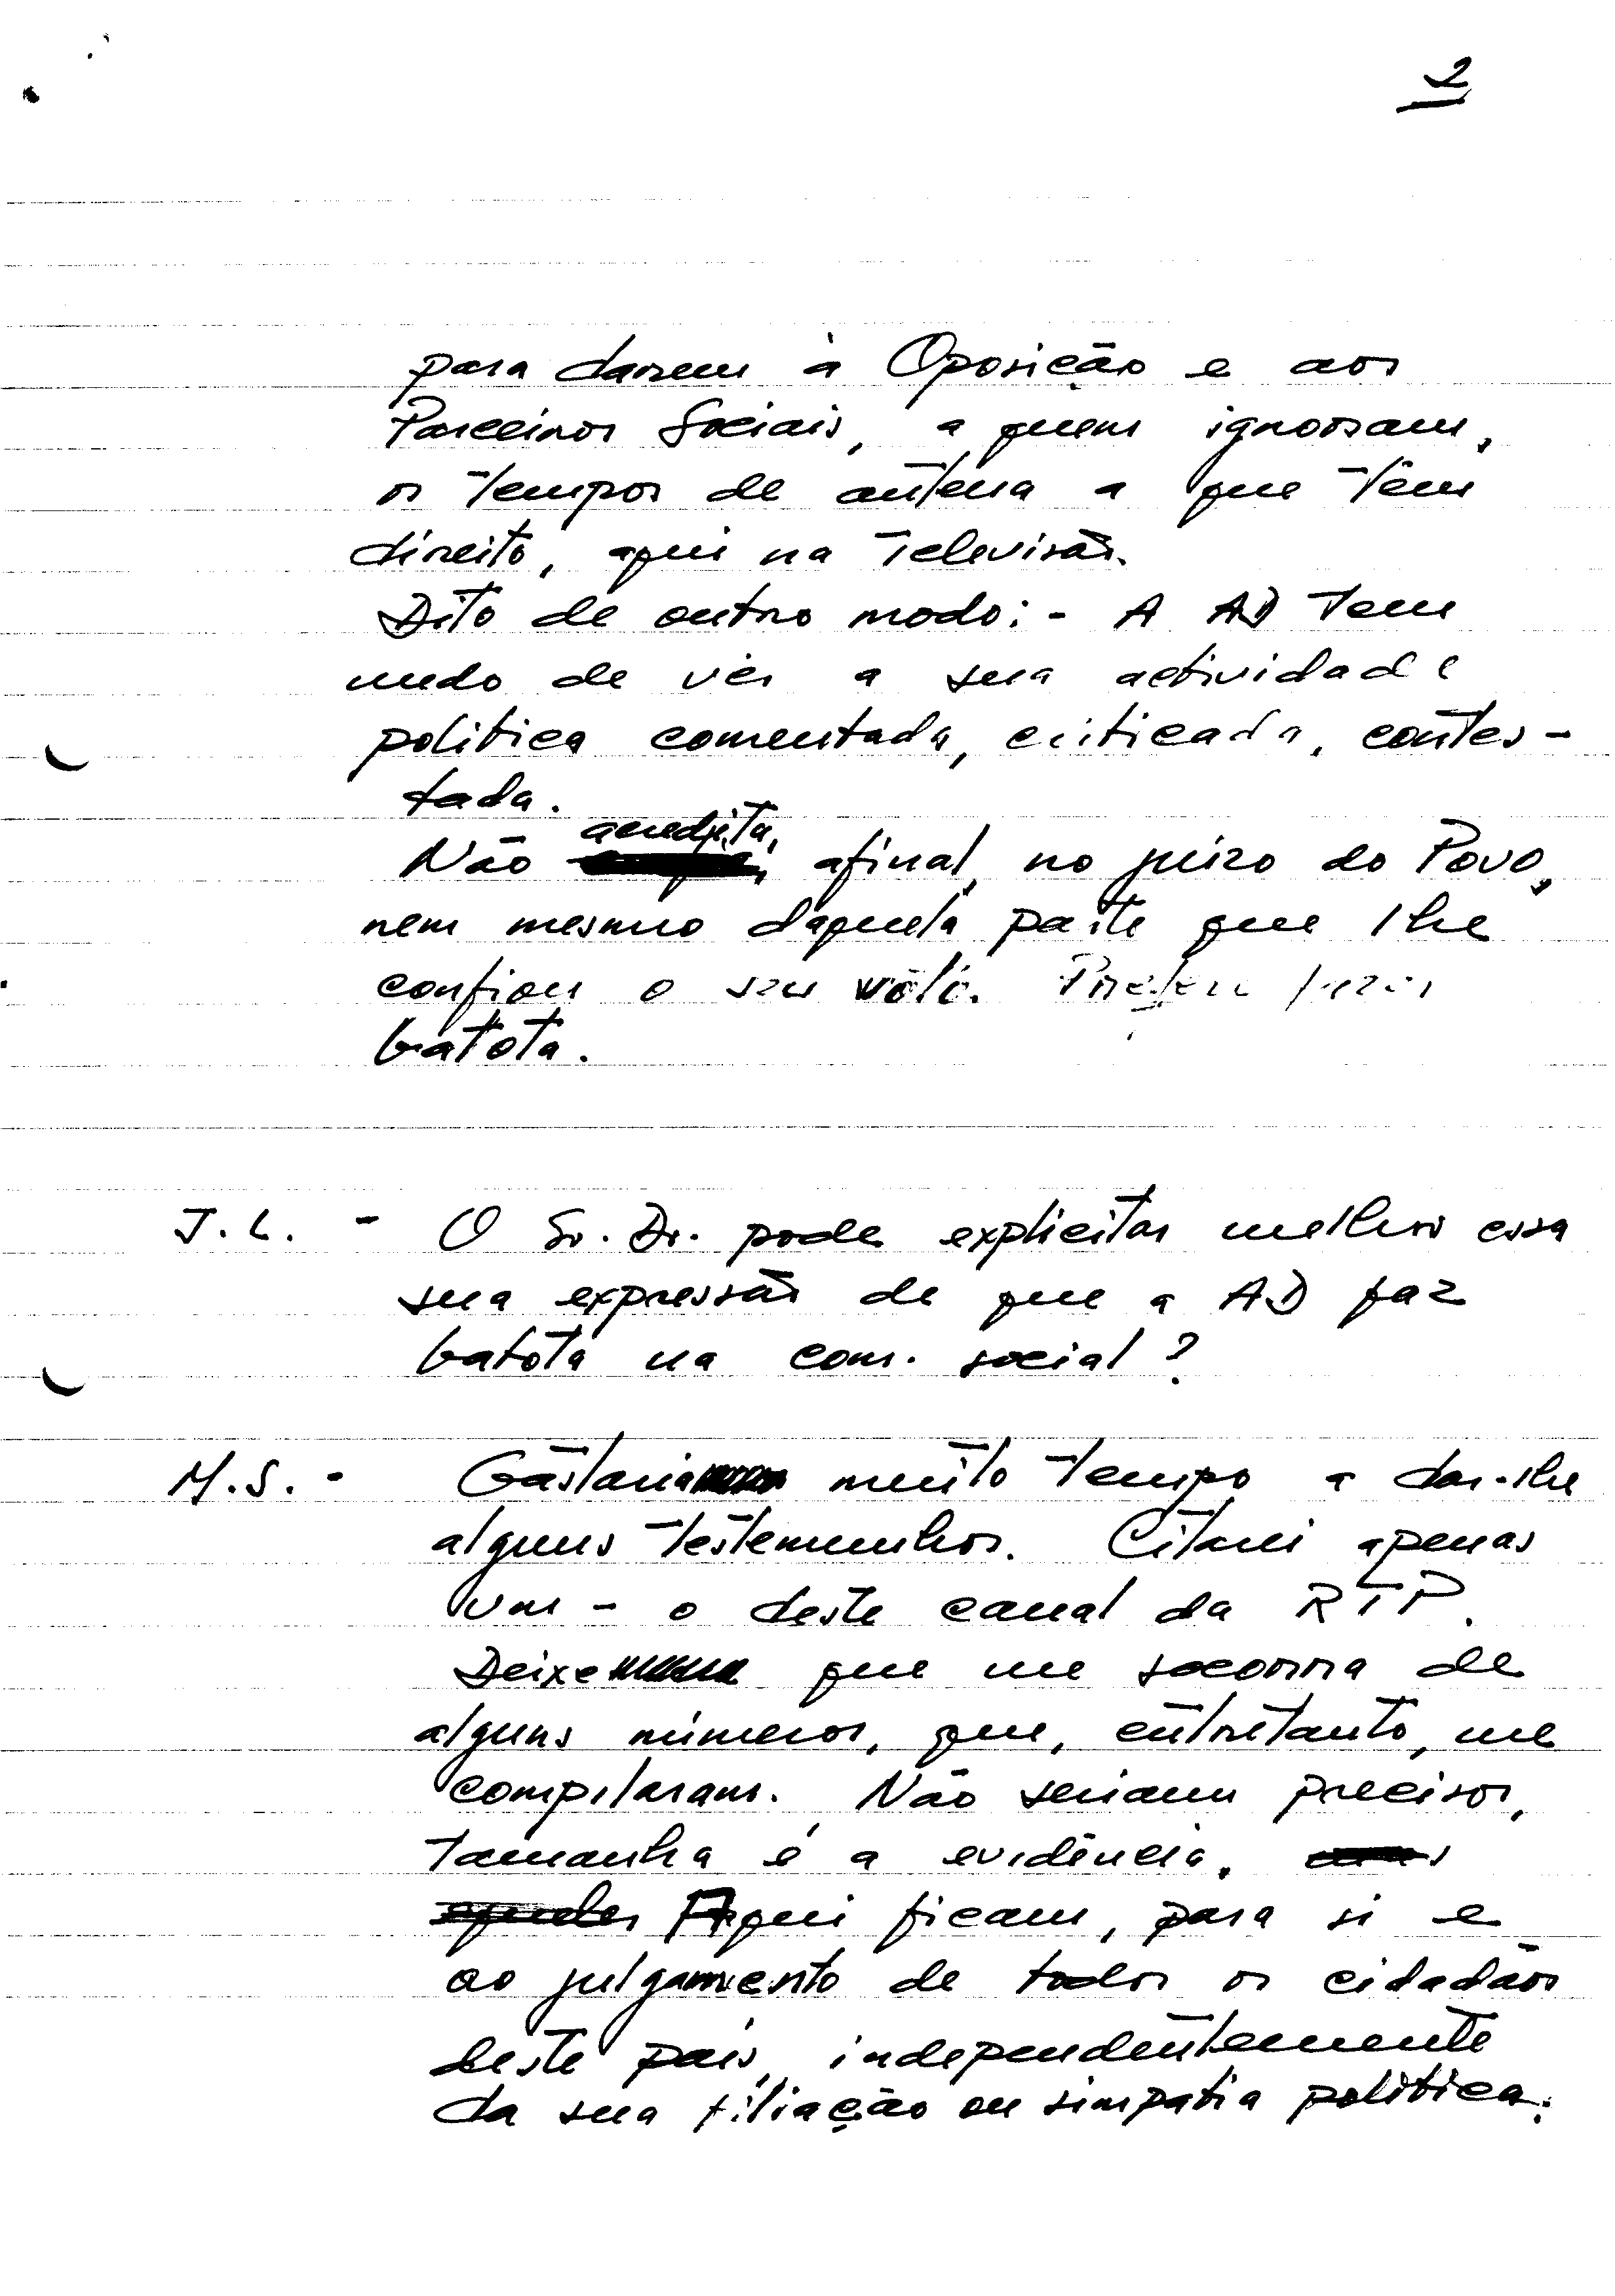 2
para darem à Oposição e aos
Parceiros Sociais, a quem ignoram,
os tempos de antena a que têm
direito, aqui na Televisão.
Dito de outro modo: - A AD tem
medo de vêr a sua actividade
politica comentada, criticada, contes-
tada.
acredita,
Não afinal, no juizo do Povo,
nem mesmo daquela parte que lhe
confiou o seu voto. Prefere fazer
batota.
J. L. - O Sr. Dr. pode explicitar melhor essa
sua expressão de que a AD faz
batota na com. social?
M.S. - Gastaria muito tempo a dar-lhe
alguns testemunhos. Citarei apenas
um - o deste canal da RTP.
Deixe que me socorra de
alguns números, que, entretanto, me
compilaram. Não seriam precisos,
tamanha é a evidência.
Aqui ficam, para si e
ao julgamento de todos os cidadãos
deste país, independentemente
da sua filiação ou simpatia politica.